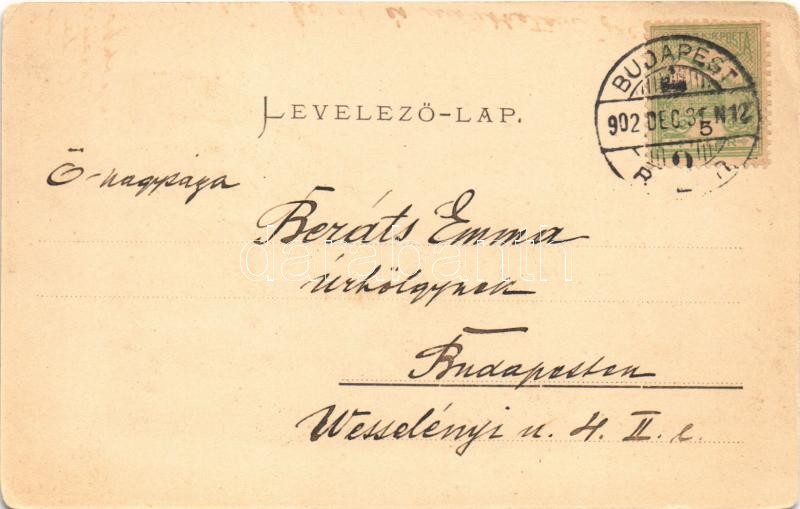 LEVELEZŐ-LAP.
BUDAPEST
902 DEC. 31 N12
5
2
Ő-nagysága
Beráts Emma
úrhölgynek
darabanth
Budapesten
Wesselényi u. 4. II. e.